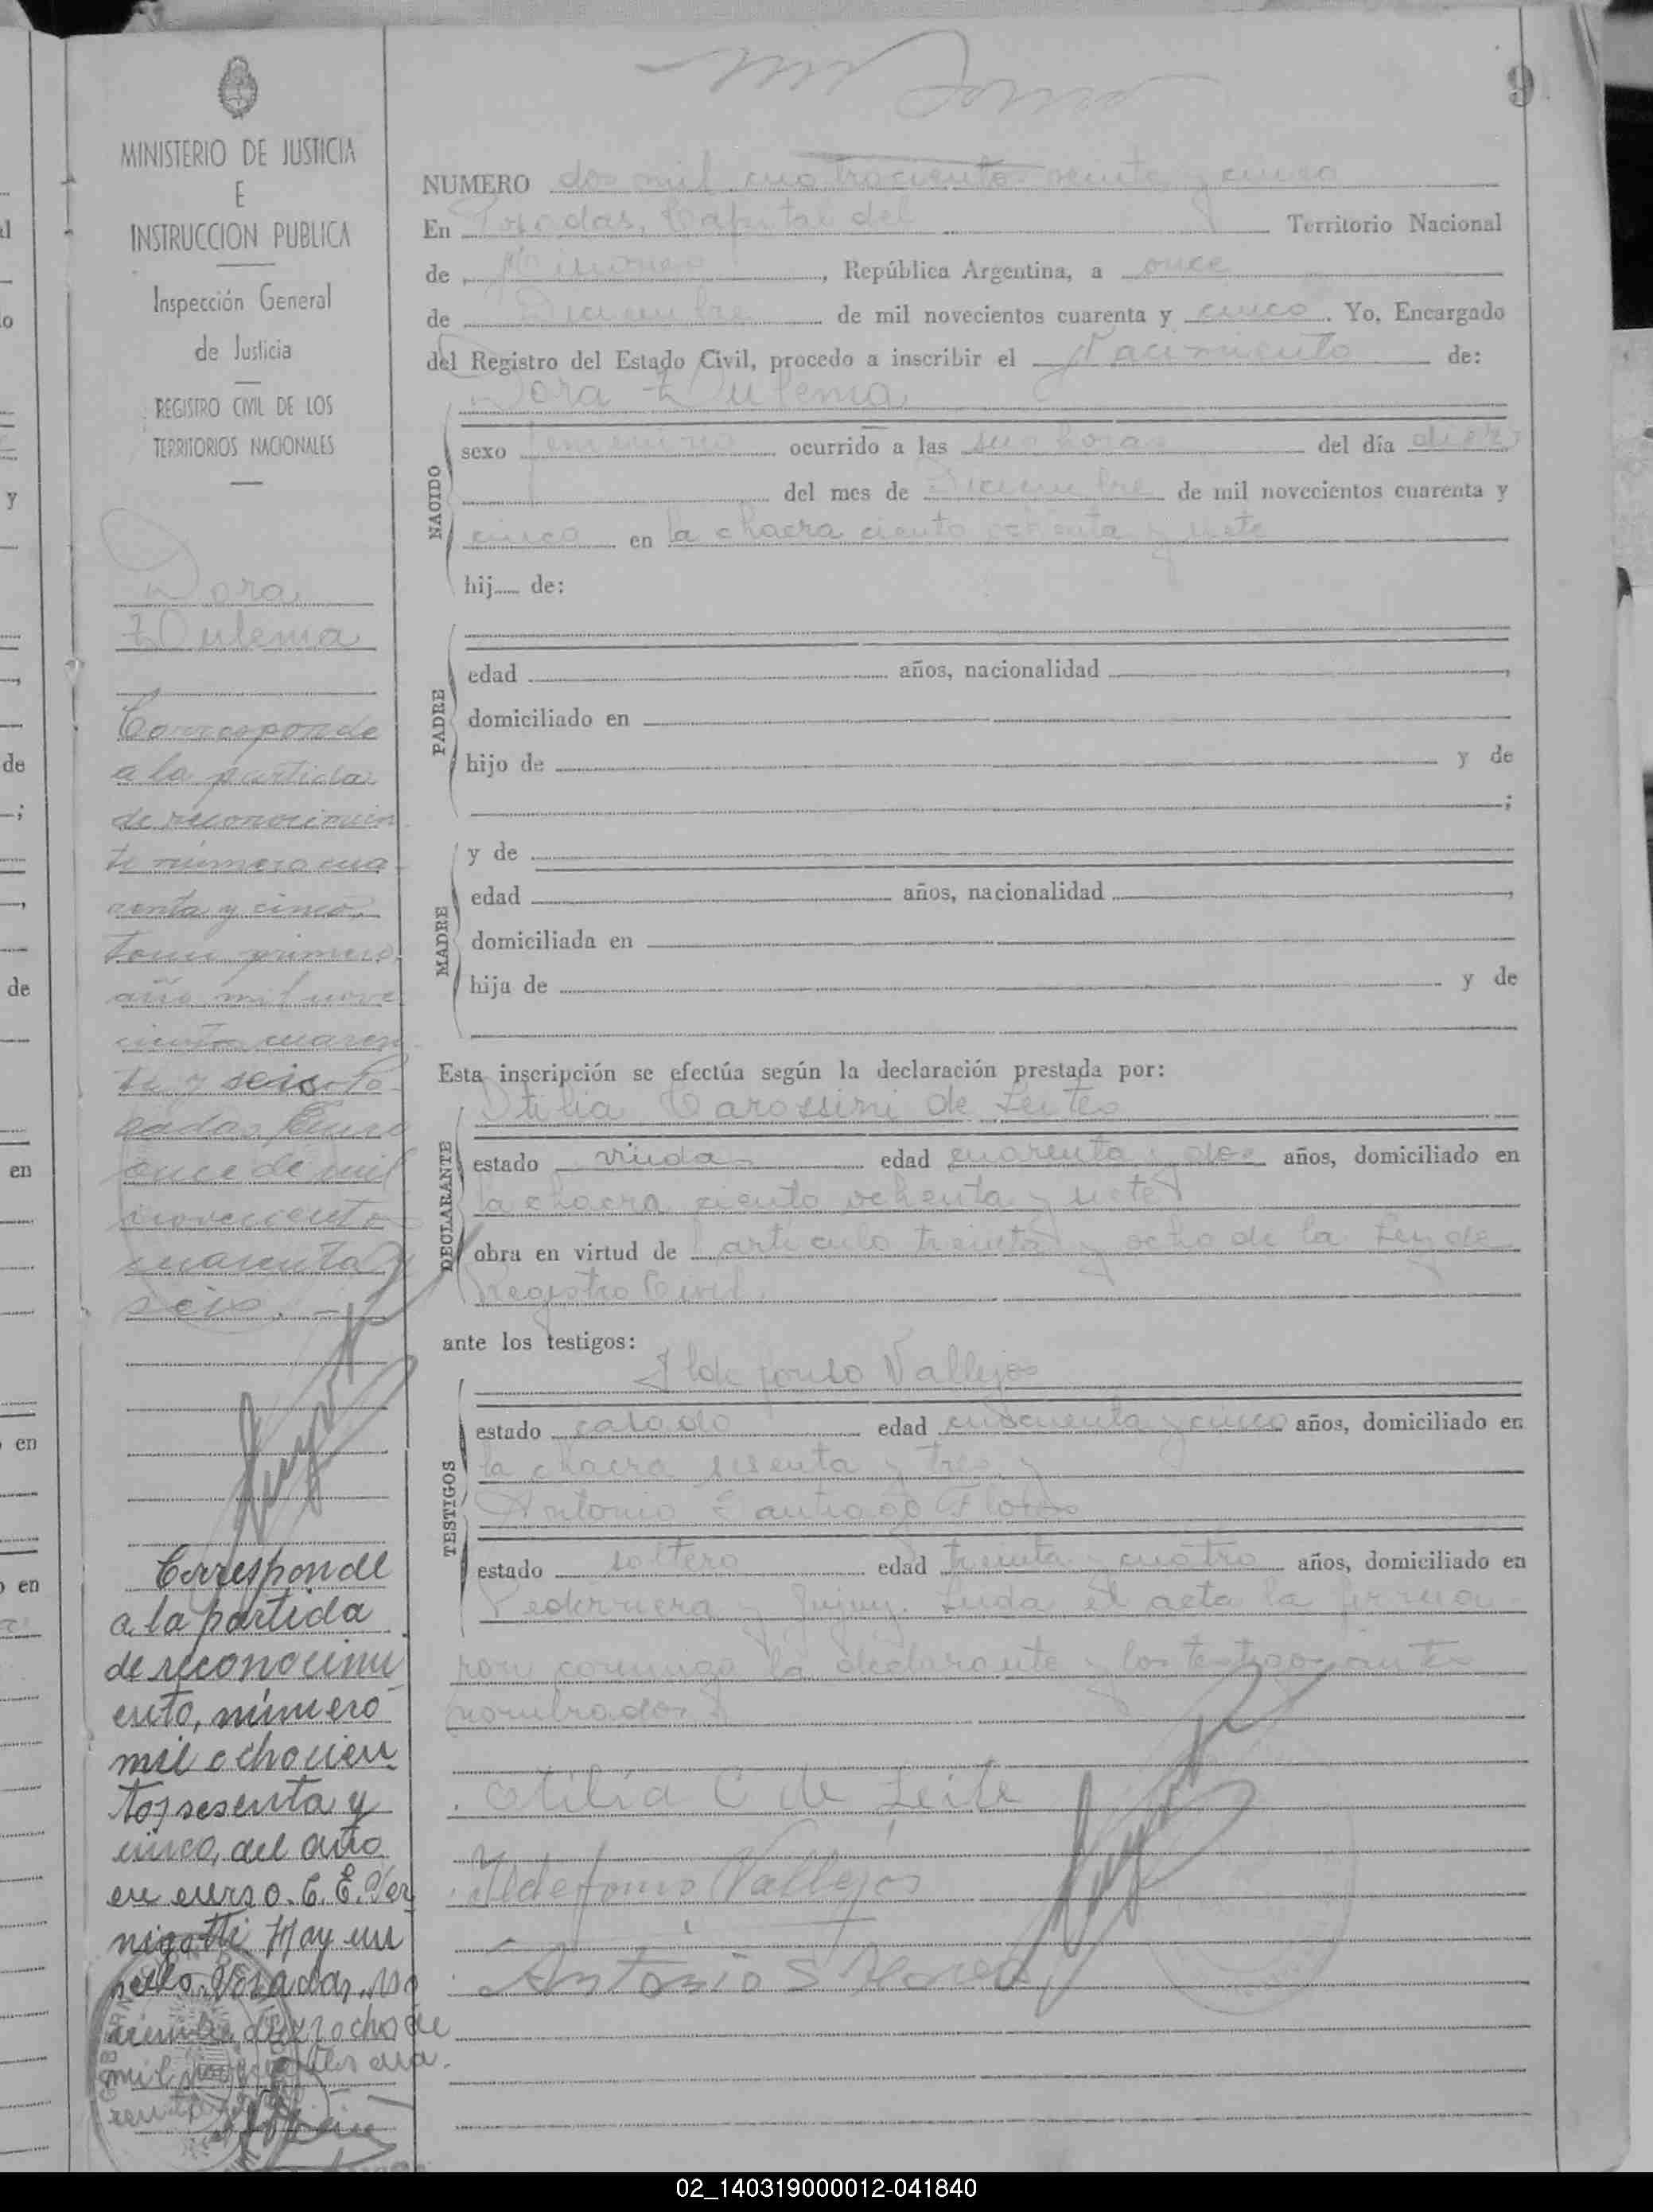 9
MINISTERIO DE JUSTICIA
E
INSTRUCCION PUBLICA
Inspección General
de Justicia
REGISTRO CIVIL DE LOS
TERRITORIOS NACIONALES
Dora
Zulema
Corresponde
a la partida
de reconocimien
to número cua-
renta y cinco,
tomo primero
año mil nove
cientos cuaren
ta y seis. Po-
sadas, Enero
once de mil
novecientos
cuarenta y
seis.
Corresponde
a la partida
de reconocimi
ento, número
mil ochocien
tos sesenta y
cinco, del año
en curso. C. E.
Hay un
sello. Posadas, No
viembre dieziocho de
mil novecientos cua-
NUMERO dos mil cuatrocientos veinte y cinco
En Posadas, Capital del Territorio Nacional
de Misiones, República Argentina, a once
de Diciembre de mil novecientos cuarenta y cinco. Yo, Encargado
del Registro del Estado Civil, procedo a inscribir el Nacimiento de:
Dora Zulema
NACIDO
sexo femenino ocurrido a las seis horas del día diez
del mes de Diciembre de mil novecientos cuarenta y
cinco en la chacra ciento ochenta y siete
hij..... de:
PADRE
edad años, nacionalidad ,
domiciliado en
hijo de y de
;
MADRE
y de
edad años, nacionalidad ,
domiciliada en
hija de y de
Esta inscripción se efectúa según la declaración prestada por:
Otilia Carossini de Leites
DECLARANTE
estado viuda edad cuarenta y dos años, domiciliado en
la chacra ciento ochenta y siete
obra en virtud de artículo treinta y ocho de la Ley de
Registro Civil.
ante los testigos:
Ildefonso Vallejos
TESTIGOS
estado casado edad cincuenta y cinco años, domiciliado en
la chacra sesenta y tres y
Antonio Santiago Flores
estado soltero edad treinta y cuatro años, domiciliado en
Pedernera y Jujuy. Leida el acta la firma
ron conmigo la declarante y los testigos antes
nombrados
Otilia C de Leite
Ildefonso Vallejos
Antonio S Flores
02_140319000012-041840